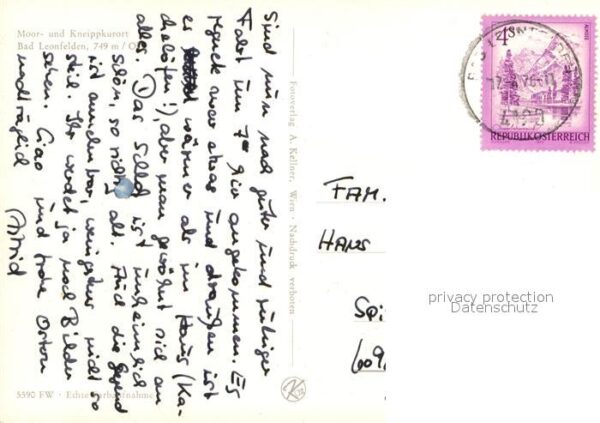 Moor- und Kneippkurort
Bad Leonfelden, 749 m / O
Sind nun nach guter und ruhiger
Fahrt um 7 hier angekommen. Es
regnet zwar etwas und draußen ist
es wärmer als im Haus (Ka-
chelöfen!), aber man gewöhnt sich an
alles. Das Schloß ist unheimlich
schön, so richtig alt. Auch die Gegend
ist wunderbar, wenigstens nicht so
steil. Ihr werdet ja noch Bilder
sehen. Ciao und frohe Ostern
nachträglich
Astrid
5590 FW · Echte Farbaufnahme
Fotoverlag A. Kellner, Wien · Nachdruck verboten
4S
REPUBLIK ÖSTERREICH
4190
FAM.
HANS
privacy protection
Datenschutz